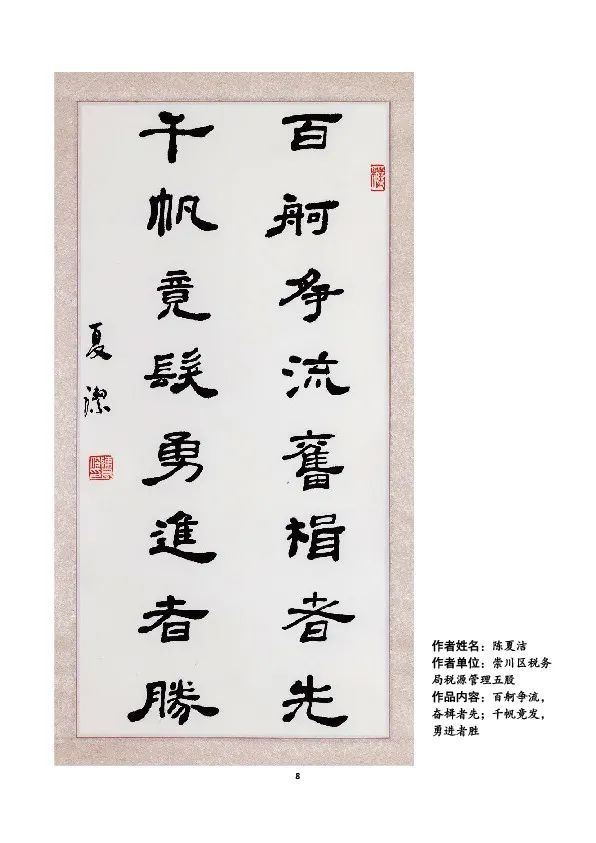 百舸爭流奮楫者先
千帆竟髮勇進者勝
夏潔
作者姓名：陈夏洁
作者单位：崇川区税务
局税源管理五股
作品内容：百舸争流，
奋楫者先；千帆竟发，
勇进者胜
8